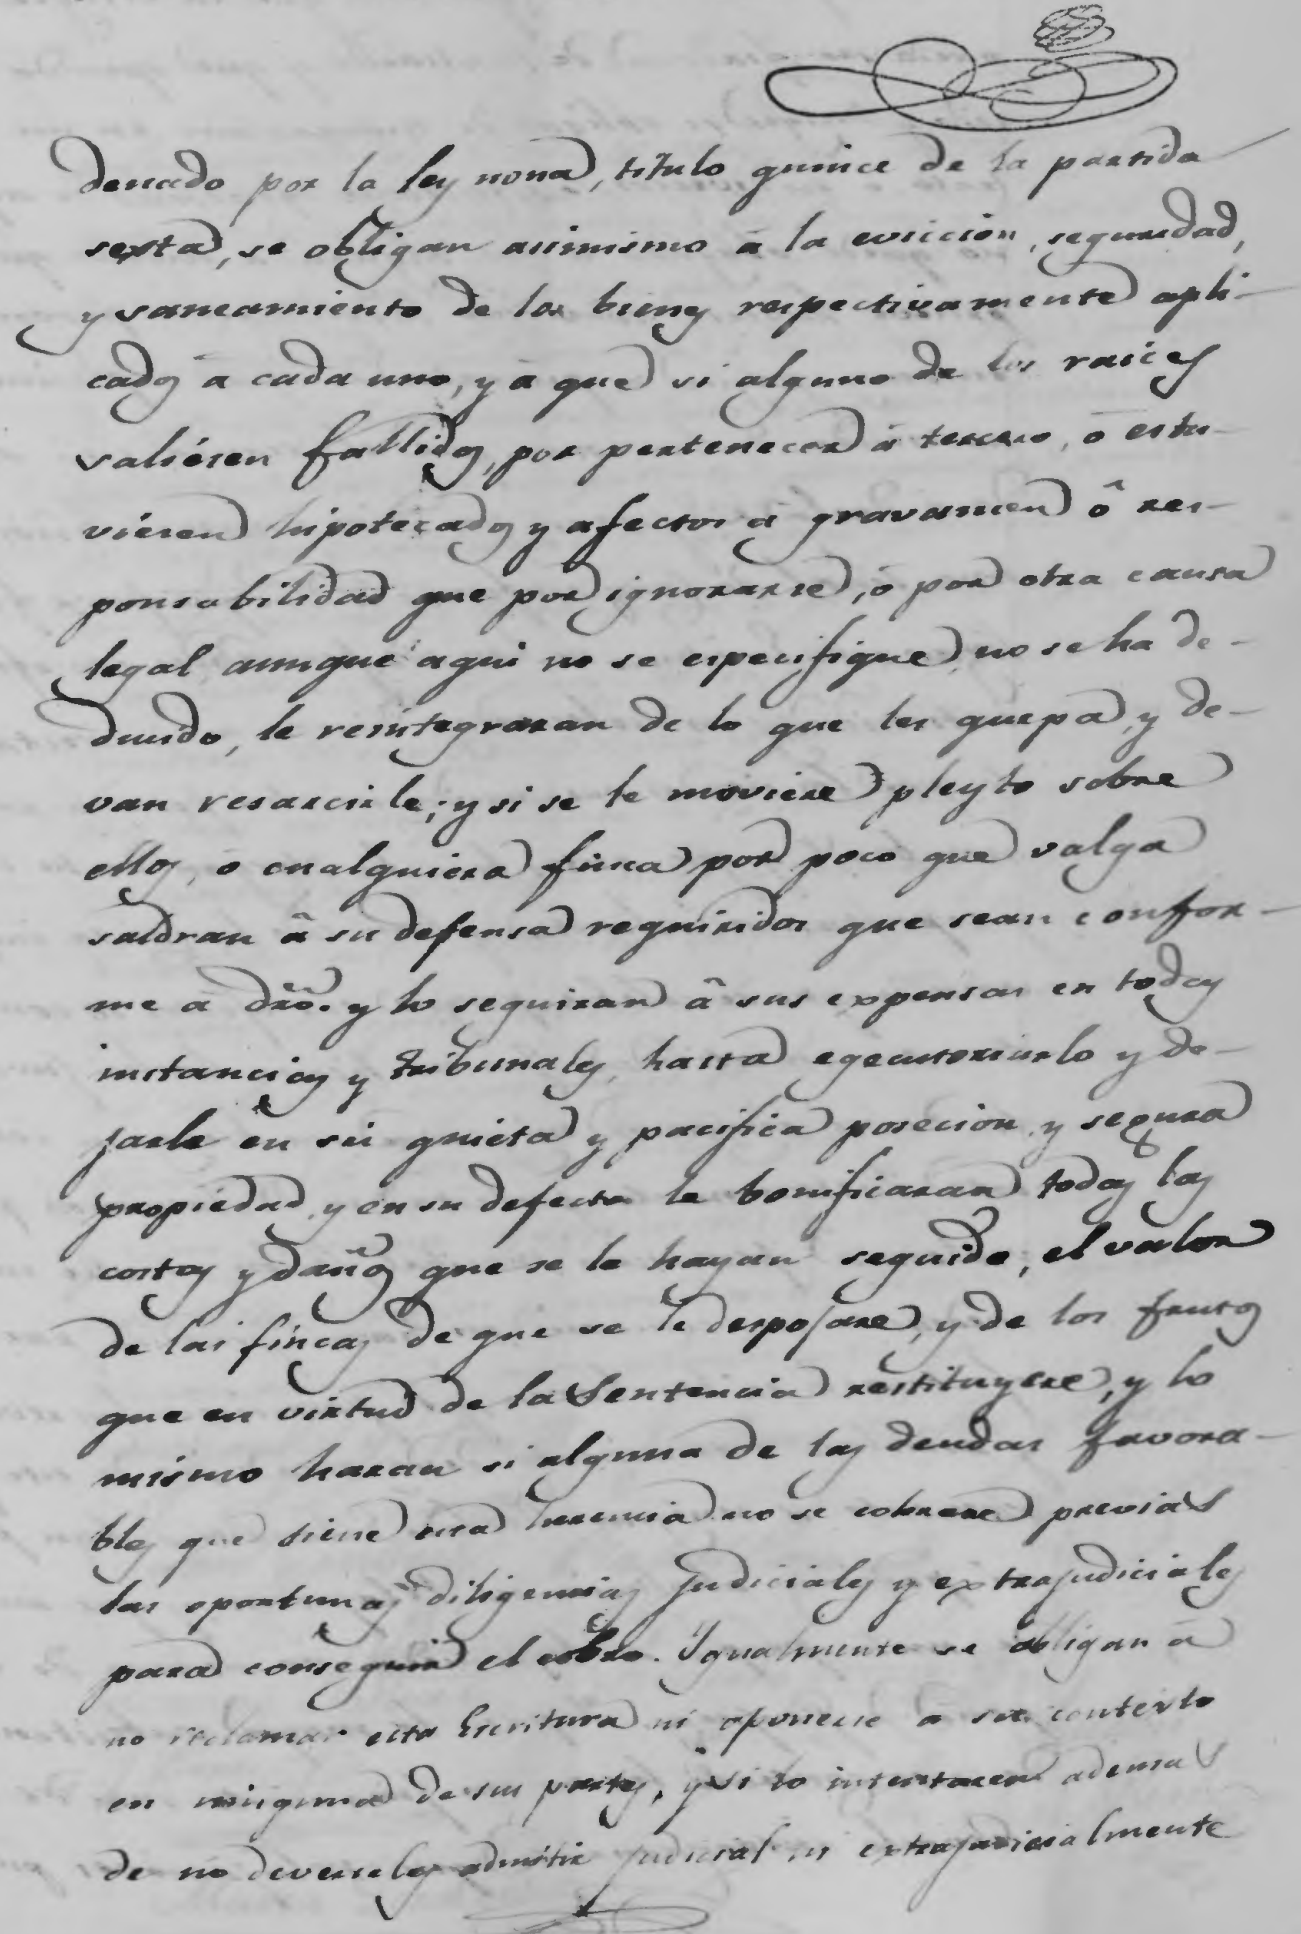 denado por la ley nona, titulo quince de la partida
sexta, se obligan asimismo á la eviccion, seguridad,
y saneamiento de los bienes respectivamente apli-
cados á cada uno, y á que si alguno de los raices
saliésen fallidos, por pertenecer á tercero, ó estu-
viésen hipotecados y afectos á gravamen ô res-
ponsabilidad que por ignorarse, ó por otra causa
legal aunque aqui no se especifique, no se ha de-
ducido, le reintegraran de lo que les quepa, y de-
van resarcirle; y si se le moviere pleyto sobre
ellos, o cualquiera finca por poco que valga
saldran â su defensa requiridos que sean confor-
me a dro. y lo seguiran â sus expensas en todas
instancias y tribunales, hasta egecutoriarlo y de-
jarle en su quieta y pacifica posecion, y segura
propiedad, y en su defecto le bonificaran todas las
costas y daños que se le hayan seguido, el valor
de las fincas de que se le despojare, y de los frutos
que en virtud de la Sentencia restituyere, y lo
mismo haran si alguna de las deudas favora-
bles que tiene esta herencia no se cobrare previas
las oportunas diligencias judiciales y extrajudiciales
para conseguir el cobro. Ygualmente se obligan á
no reclamar esta Escritura ni oponerse a su contexto
en ninguna de sus partes, y si lo intentaren ademas
de no deverseles admitir judicial ni extrajudicialmente